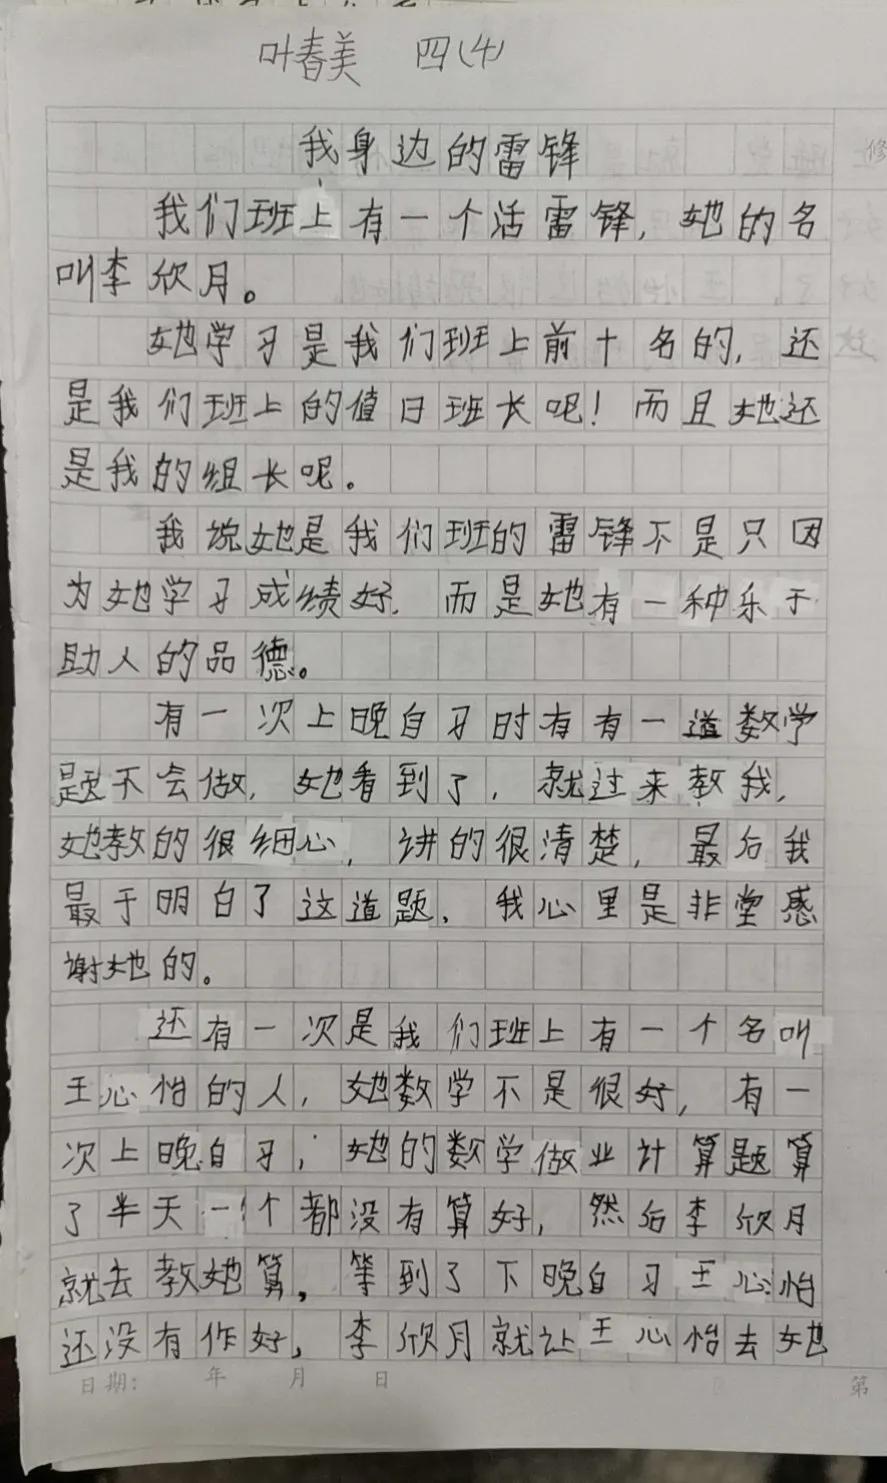 叶春美 四(4)
我身边的雷锋
我们班上有一个活雷锋，她的名
叫李欣月。
她学习是我们班上前十名的，还
是我们班上的值日班长呢！而且她还
是我的组长呢。
我说她是我们班的雷锋不是只因
为她学习成绩好，而是她有一种乐于
助人的品德。
有一次上晚自习时有有一道数学
题不会做，她看到了，就过来教我，
她教的很细心，讲的很清楚，最后我
最于明白了这道题，我心里是非堂感
谢她的。
还有一次是我们班上有一个名叫
王心怡的人，她数学不是很好，有一
次上晚自习，她的数学做业计算题算
了半天一个都没有算好，然后李欣月
就去教她算，等到了下晚自习王心怡
还没有作好，李欣月就让王心怡去她
日期： 年 月 日
第
修